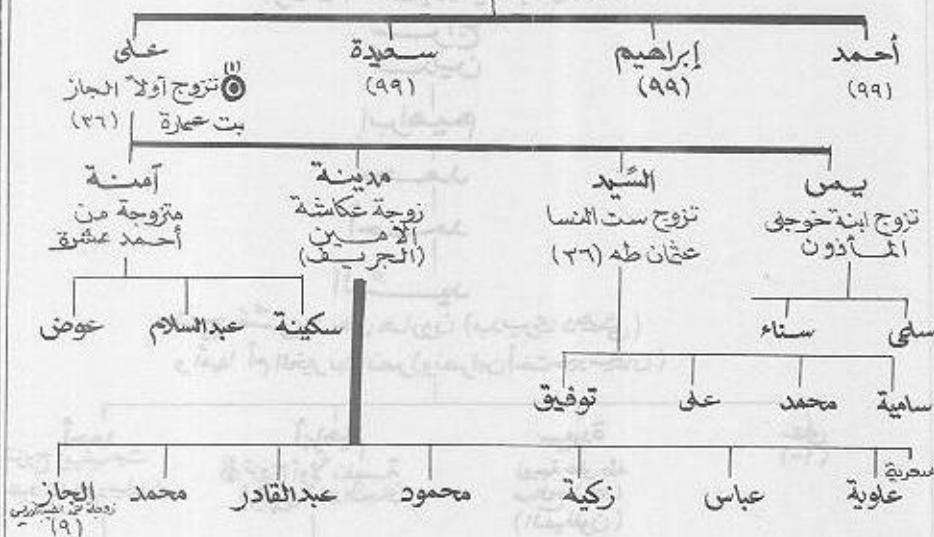 أحمد
(٩٩)
إبراهيم
(٩٩)
سعيدة
(٩٩)
على
(١) تزوج أولاً الجاز
بت عمارة (٣٦)
يس
تزوج ابنة خوجلى
المأذون
السَّيد
تزوج ست النسا
عثمان طه (٣٦)
مدينة
زوجة عكاشة
الامين
(الجريف)
آمنة
متزوجة من
أحمد عشرق
سلمى
سناء
سكينة
عبدالسلام
عوض
سامية
محمد
على
توفيق
علوية
عباس
زكية
محمود
عبدالقادر
محمد
الجاز
(٩)